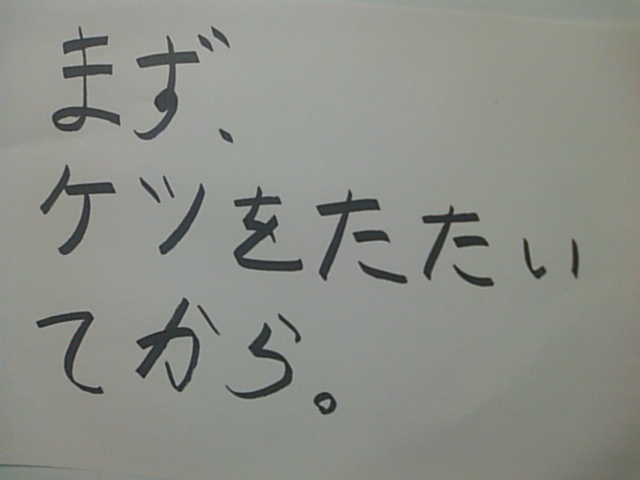 まず、
ケツをたたい
てから。